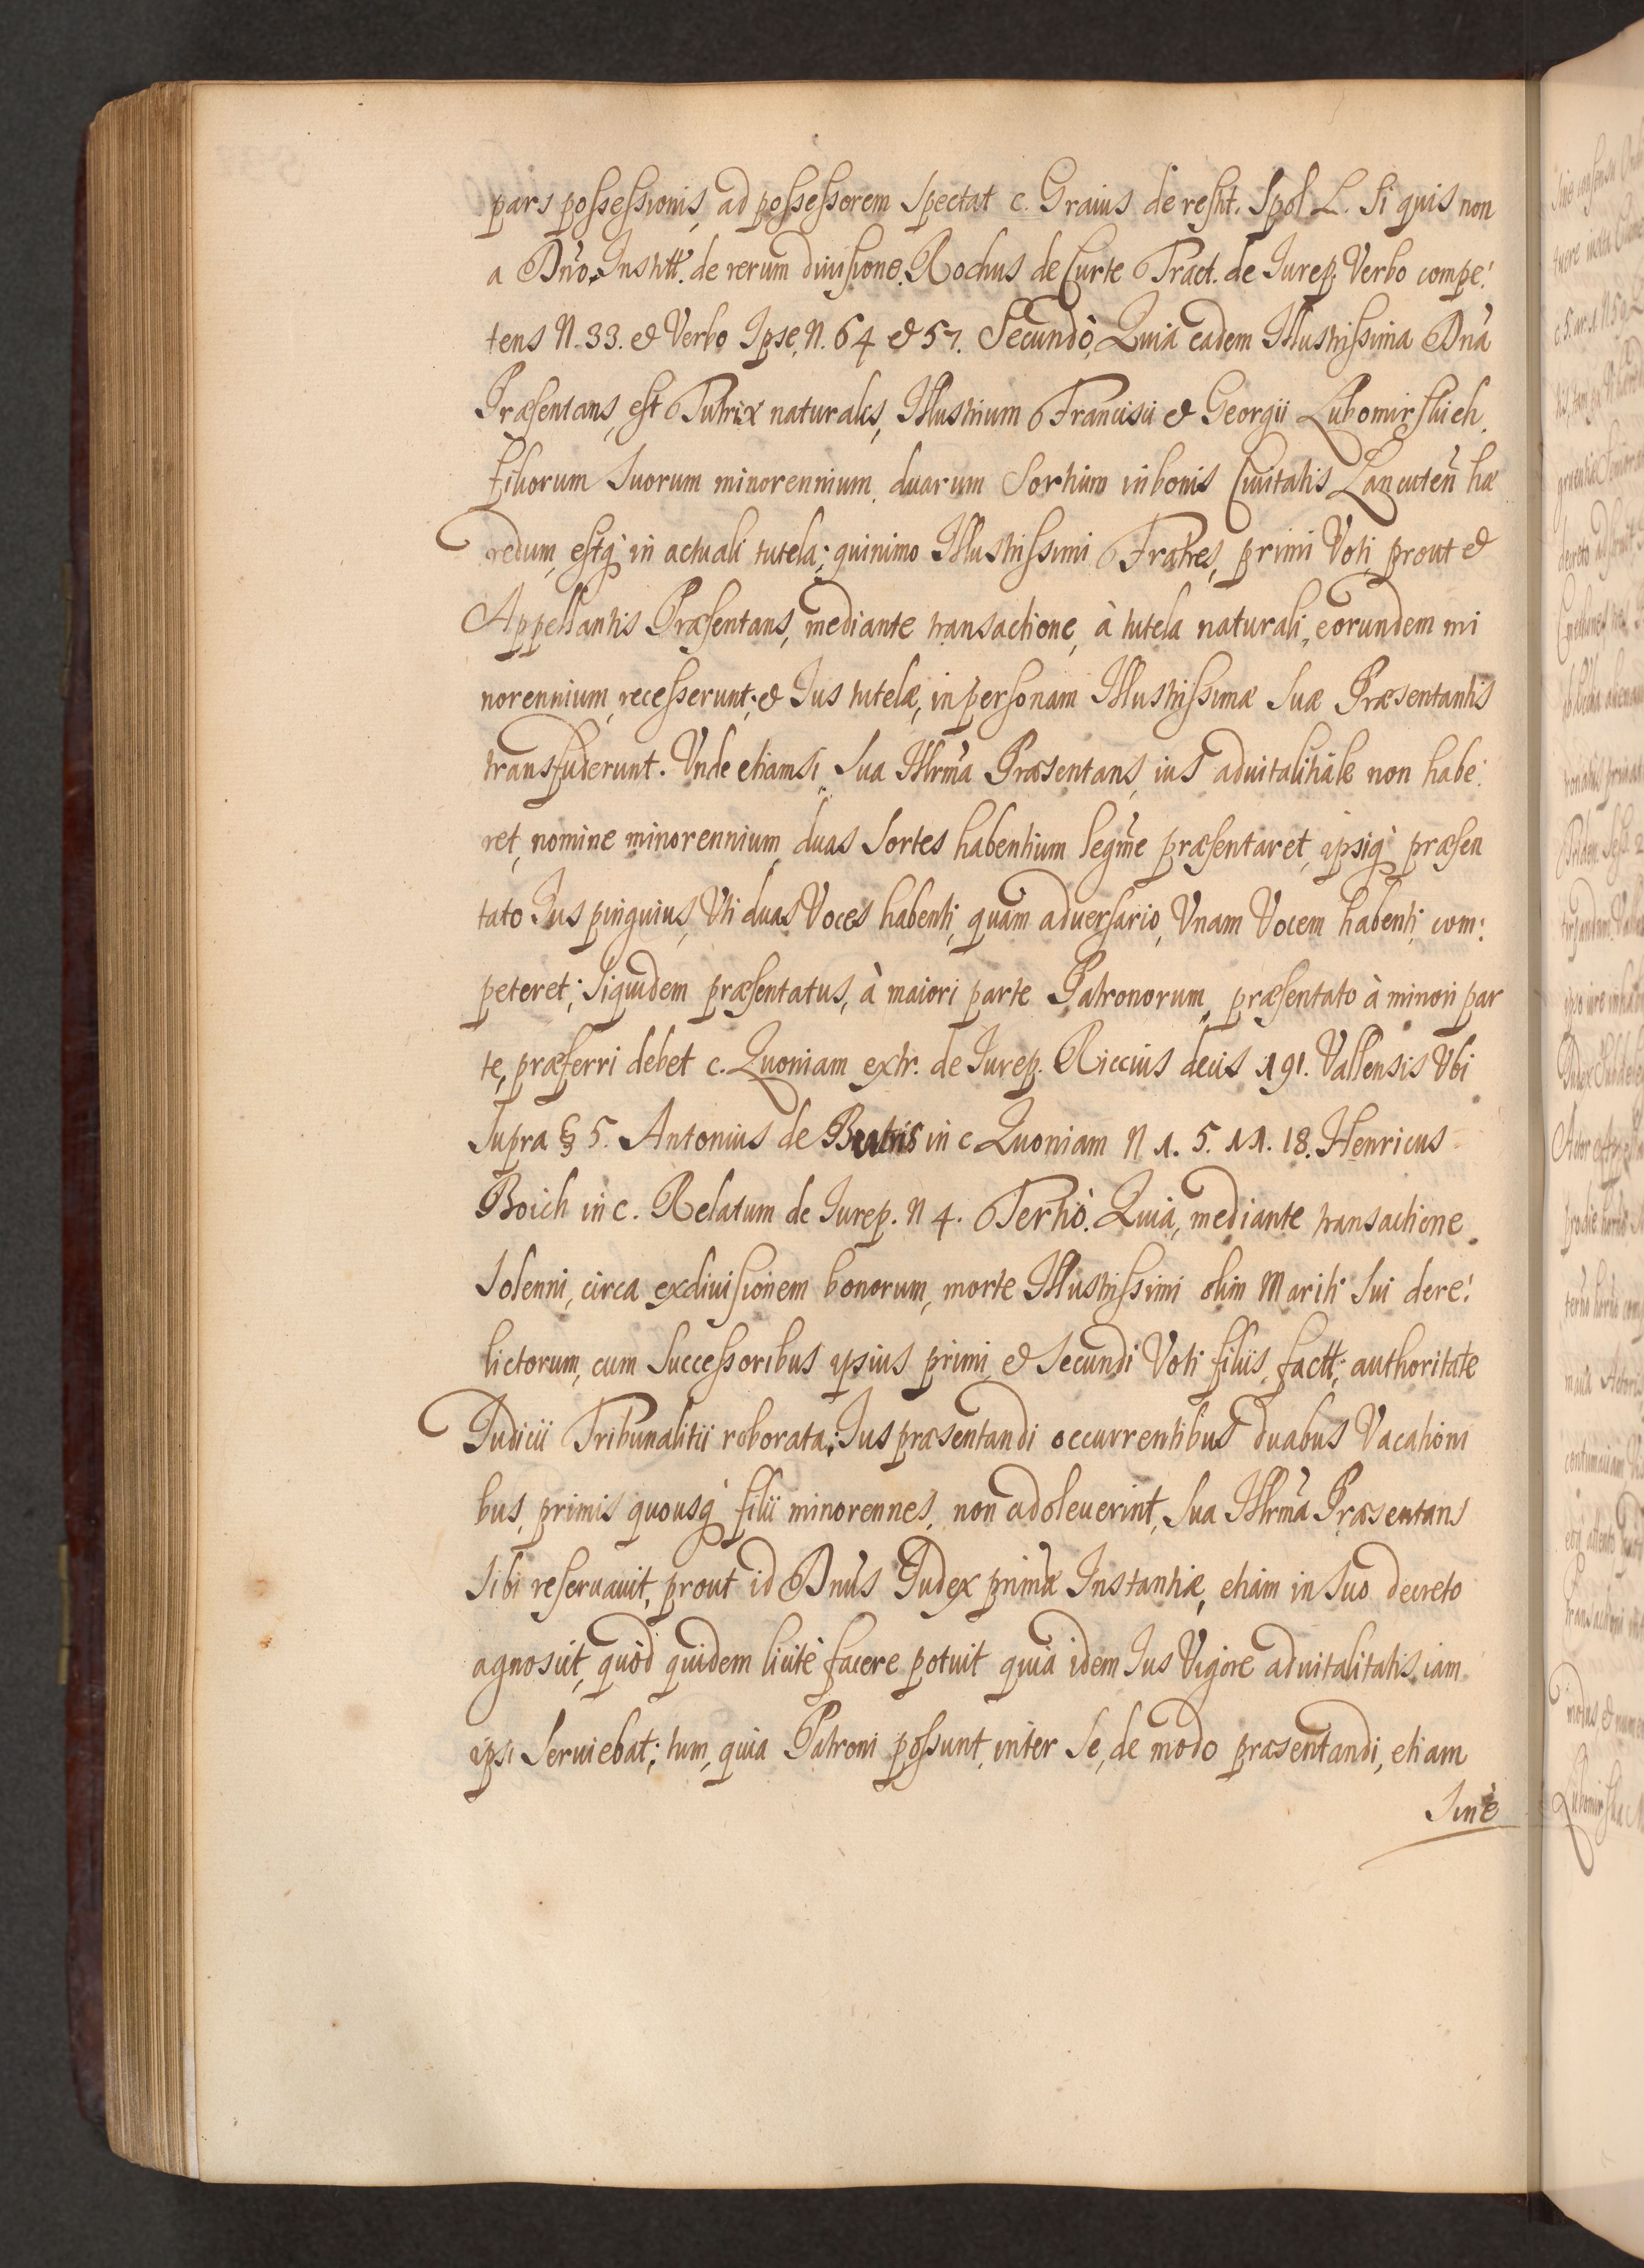 pars possessionis, ad possessorem Spectat c. Graius de restit. Spol L. Si quis non
a Dño. Instit. de rerum diuisione. Rochus de Curte Tract. de Iurep. Verbo compe:
tens N. 33. et Verbo Ipse. N. 64 et 57. Secundò, Quia eadem Illustrissima Dña
Præsentans, est Tutrix naturalis, Illustrium Francisci et Georgii Lubomirskich
filiorum Suorum minorennium, duarum Sortium in bonis Ciuitatis Lancuteñ hæ
redum, estq̀ in actuali tutela; quinimo Illustrissimi Fratres, primi Voti, prout et
Appellantis Præsentans, mediante transactione, à tutela naturali, eorundem mi
norennium, recesserunt; et Ius tutelæ, in personam Illustrissimæ Suæ Præsentantis
transfuderunt. Vnde etiamsi Sua Illrma Præsentans, ius aduitalitiale non habe:
ret, nomine minorennium, duas Sortes habentium legm̃e præsentaret, ipsiq̀ præsen
tato Ius pinguius, Vti duas Voces habenti, quàm aduersario, Vnam Vocem habenti, com:
peteret; Siquidem præsentatus, à maiori parte Patronorum, præsentato à minori par
te, præferri debet c. Quoniam extr. de Iurep. Riccius decis 191. Vallensis Vbi
Supra § 5. Antonius de Butris in c Quoniam N 1. 5. 11. 18. Henricus
Boich in c. Relatum de Iurep. N 4. Tertiò. Quia, mediante transactione
Solenni, circa exdiuisionem bonorum, morte Illustrissimi olim Mariti Sui dere:
lictorum, cum Successoribus ipsius primi et Secundi Voti filiis, factt; authoritate
Iudicii Tribunalitii roborata; Ius præsentandi occurrentibus duabus Vacationi
bus, primis quousq̀ filii minorennes, non adoleuerint, Sua Illrma Præsentans
Sibi reseruauit, prout id Dnus Iudex primæ Instantiæ, etiam in Suo decreto
agnoscit, quòd quidem licitè facere potuit quia idem Ius Vigore aduitalitatis, iam
ipsi Seruiebat; tum, quia Patroni possunt, inter Se, de modo præsentandi, etiam
Sine